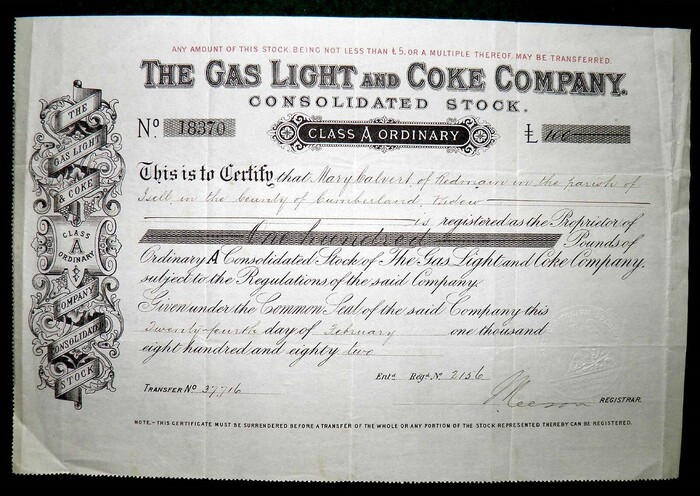 ANY AMOUNT OF THIS STOCK, BEING NOT LESS THAN £5, OR A MULTIPLE THEREOF, MAY BE TRANSFERRED.
THE GAS LIGHT AND COKE COMPANY.
CONSOLIDATED STOCK.
No. 18370
CLASS A ORDINARY
£ 100
THE
GAS LIGHT
& COKE
CLASS
A
ORDINARY
COMPANY
CONSOLIDATED
STOCK
This is to Certify that Mary Calvert of Redmain in the parish of
Isell in the County of Cumberland, Widow
is registered as the Proprietor of
One hundred Pounds of
Ordinary A Consolidated Stock of The Gas Light and Coke Company,
subject to the Regulations of the said Company.
Given under the Common Seal of the said Company this
Twenty-fourth day of February one thousand
eight hundred and eighty two
Entd. Regr. No. 2156
TRANSFER No 37,716
REGISTRAR.
NOTE.- THIS CERTIFICATE MUST BE SURRENDERED BEFORE A TRANSFER OF THE WHOLE OR ANY PORTION OF THE STOCK REPRESENTED THEREBY CAN BE REGISTERED.